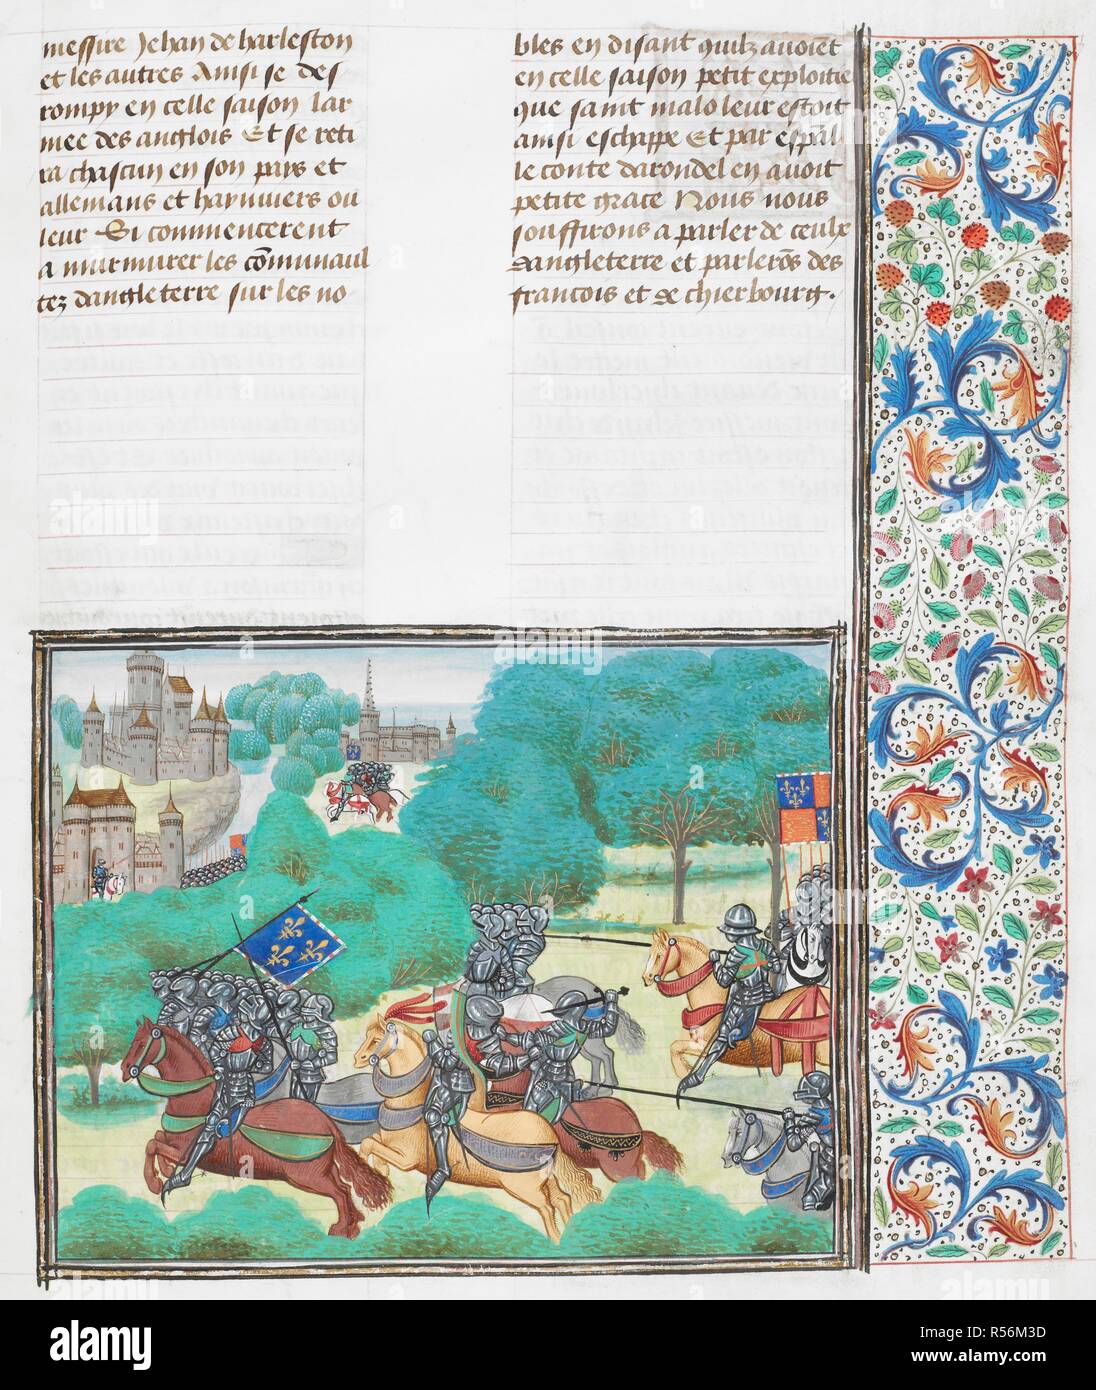 messire Jehan de harleston
et les autres Ainsi se des
rompy en celle saison lar
mee des anglois Et se reti
ra chascun en son pays et
allemans et haynuiers ou
leur Si commencerent
a murmurer les cōmunaul
tez dangleterre sur les no
bles en disant quilz avoiēt
en celle saison petit exploitie
que saint malo leur estoit
ainsi eschappe Et par esp̄al
le conte darondel en avoit
petite grace Nous nous
souffrirons a parler de ceulx
dangleterre et parlerōs des
francois et de chierbourg.
alamy
Image ID: R56M3D
www.alamy.com